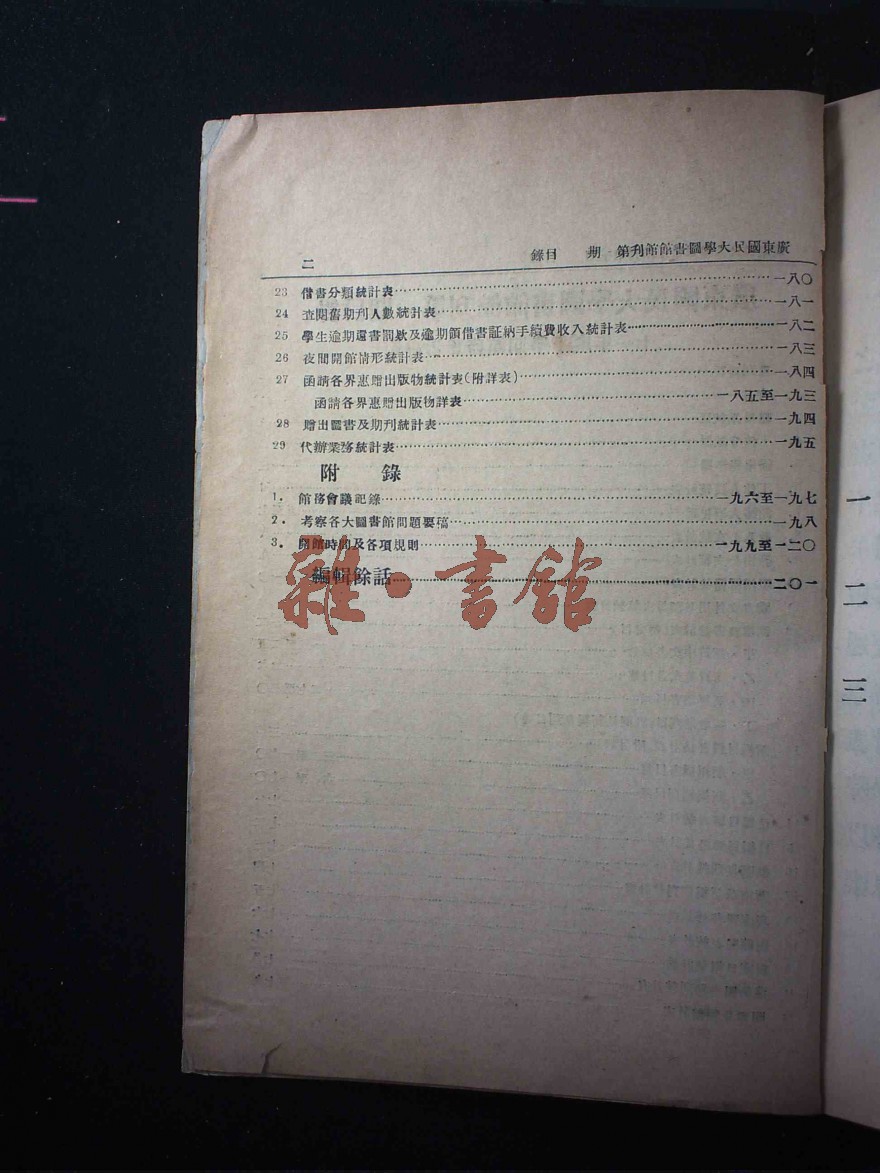 廣東國民大學圖書館館刊第一期　目錄　二
23 借書分類統計表…一八〇
24 查閱舊期刊人數統計表…一八一
25 學生逾期還書罰欵及逾期領借書証納手續費收入統計表…一八二
26 夜間開館情形統計表…一八三
27 函請各界惠贈出版物統計表(附詳表)…一八四
函請各界惠贈出版物詳表…一八五至一九三
28 贈出圖書及期刊統計表…一九四
29 代辦業務統計表…一九五
附　錄
1. 館務會議記錄…一九六至一九七
2. 考察各大圖書館問題要稿…一九八
3. 開館時間及各項規則…一九九至一二〇
編輯餘話…二〇一
雜·書館
一
二
三